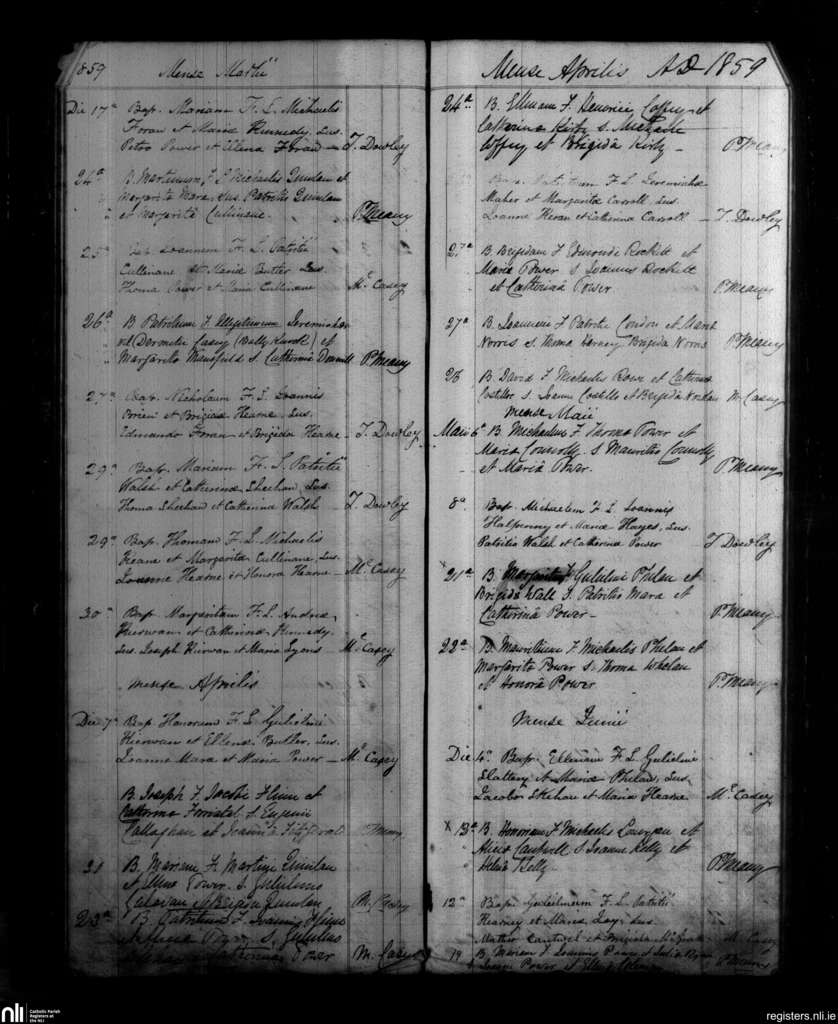 1859 Mense Martii
Die 17a Bap. Mariam F. L. Michaelis
Foran et Maria Kennedy, Sus.
Petro Power et Ellena Foran — T. Dowley
24a B. Martinum F L Michaelis Quinlan et
Margarita Mara, Sus. Patritis Quinlan
et Margarita Cullinane. P Meany
25a Bap. Joannem F. L. Patritii
Cullinane et Maria Butler Sus.
Thoma Power et Maria Cullinane Mc Casey
26a B Patritium F Jeremiah
vel Dermitii Casey (Bally Karroll) et
Margarita Mansfield S Catherina P Meany
27a Bap. Nicholaum F. L. Joannis
Brien et Brigida Hearne, Sus.
Edmundo Foran et Brigida Hearne — T. Dowley
29a Bap. Mariam F. L. Patritii
Walsh et Catherina Sheehan, Sus.
Thoma Sheehan et Catherina Walsh — T. Dowley
29a Bap. Thomam F. L. Michaelis
Keane et Margarita Cullinane, Sus.
Joanne Hearne et Honora Hearne — Mc Casey
30a Bap. Margaritam F. L. Andrea
Kierwan et Catherina Kennedy
Sus. Joseph Kirwan et Maria Lyons — Mc Casey
mense Aprilis
Die 7a Bap Honoram F. L Gulielmi
Kierwan et Ellena Butler, Sus.
Joanne Mara et Maria Power — Mc Casey
B. Joseph F Jacobi Flinn et
Catherina S Eugenii
Callaghan et Joanna Fitzgerald P Meany
21 B. Mariam F. Martini Quinlan
et Power S. Gulielmus
et Brigida Quinlan M. Casey
23a B Patritium F. Joannis
Power S. Gulielmus
Power M. Casey
Mense Aprilis AD 1859
24a B. Ellenam F. Henrici Coffey et
Catherina Kirby S. Michaele
Coffey et Brigida Kirby — P Meany
Bap. Patritium F. L. Jeremiah
Maher et Margarita Carroll, Sus.
Joanne Heran et Catherina Carroll — T. Dowley
27a B. Brigidam F Edmundi Rockett et
Maria Power S Joannes Rockett
et Catherina Power P Meany
27a B. Joannem F Patritii Condon et Maria
Norris S. Thoma Harney Brigida Norris P Meany
28 B. David F Michaelis Rowe et Catherina
Costillo S. Joanne Costillo et Brigida M. Casey
mense Maii
Maii 6a B. Michaelum F Thoma Power et
Maria Connolly S Mauritio Connolly
et Maria Power. P Meany
8a Bap. Michaelem F. L. Joannis
Halpenny et Maria Hayes, Sus.
Patritio Walsh et Catherina Power T Dowley
21a B. Margaritam F Gulielmi Phelan et
Brigida Wall S. Patritio Mara et
Catherina Power — P Meany
22a B. Mauritium F Michaelis Phelan et
Margarita Power S. Thoma Whelan
et Honora Power P. Meany
Mense Junii
Die 4a Bap. Ellenam F. L. Gulielmi
Slattery et Maria Phelan, Sus.
Jacobo Skehan et Maria Hearne Mc Casey
x 13a B. Honoram F Michaelis et
Alicia Cantwell S Joanne Kelly et
Kelly. P Meany
12a Bap. Gulielmum F. L. Patritii
Kearney et Maria Sus
Cantwel et Brigida McGrath M Casey
19 B. Mariam F Joannis Power et
Power et P Meany
nli
Catholic Parish
Registers at
the NLI
registers.nli.ie